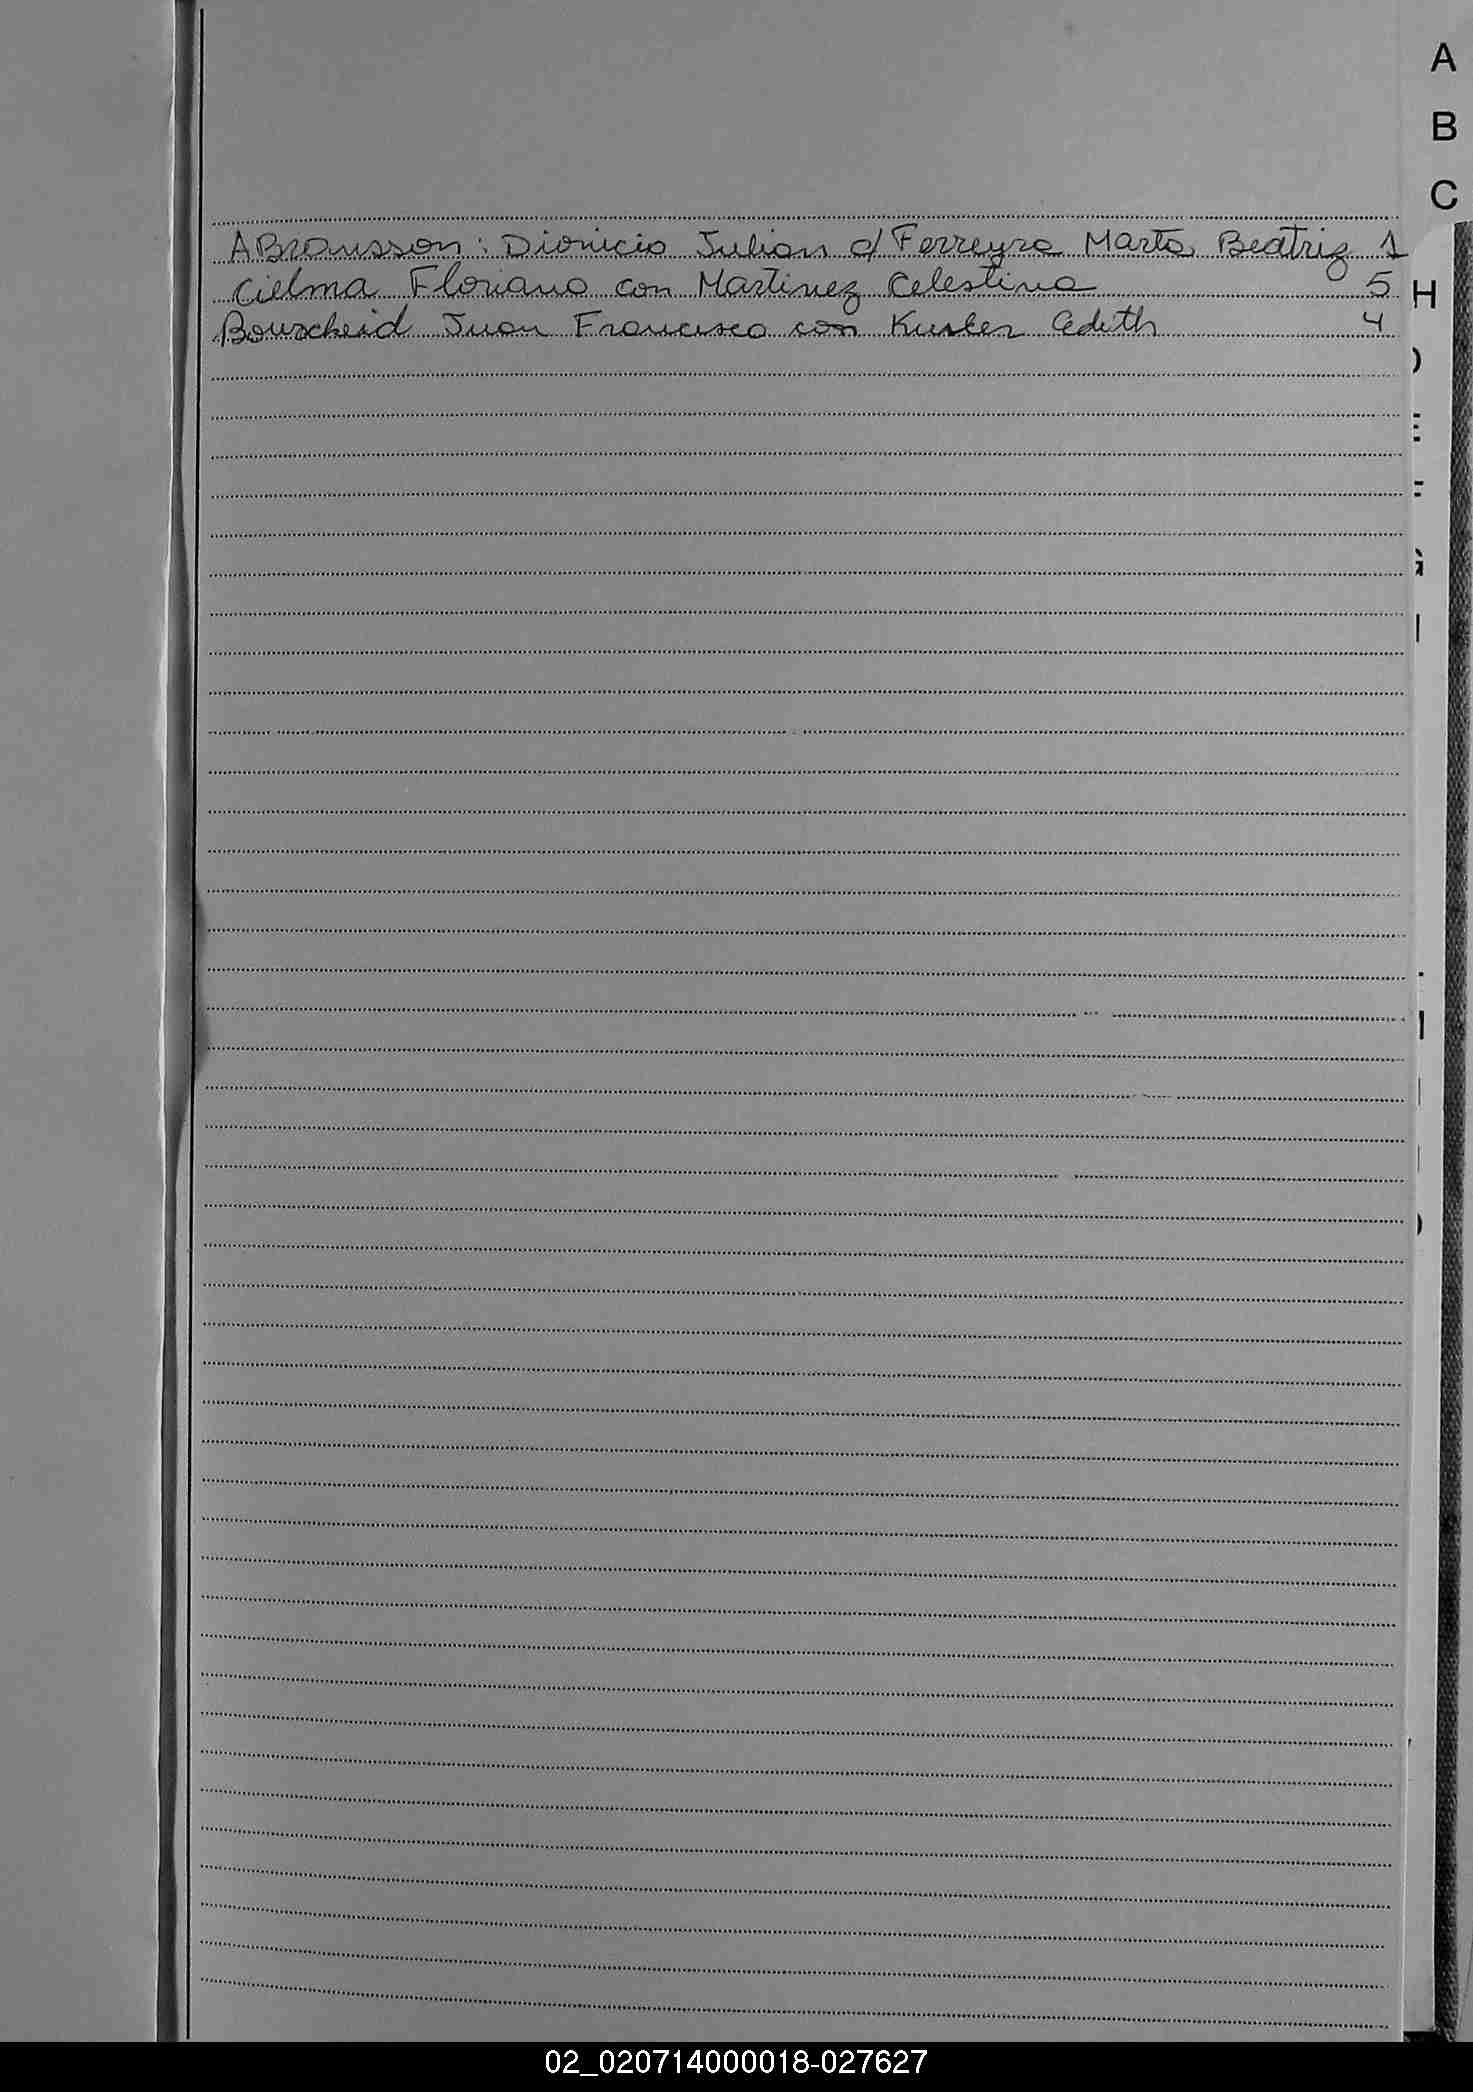 A
B
C
ABramsson: Dionicio Julian c/ Ferreyra Marta Beatriz 1
Cielma Floriano con Martinez Celestina 5
H
Bourscheid Juan Francisco con Kuster Edith 4
E
F
G
I
02_020714000018-027627